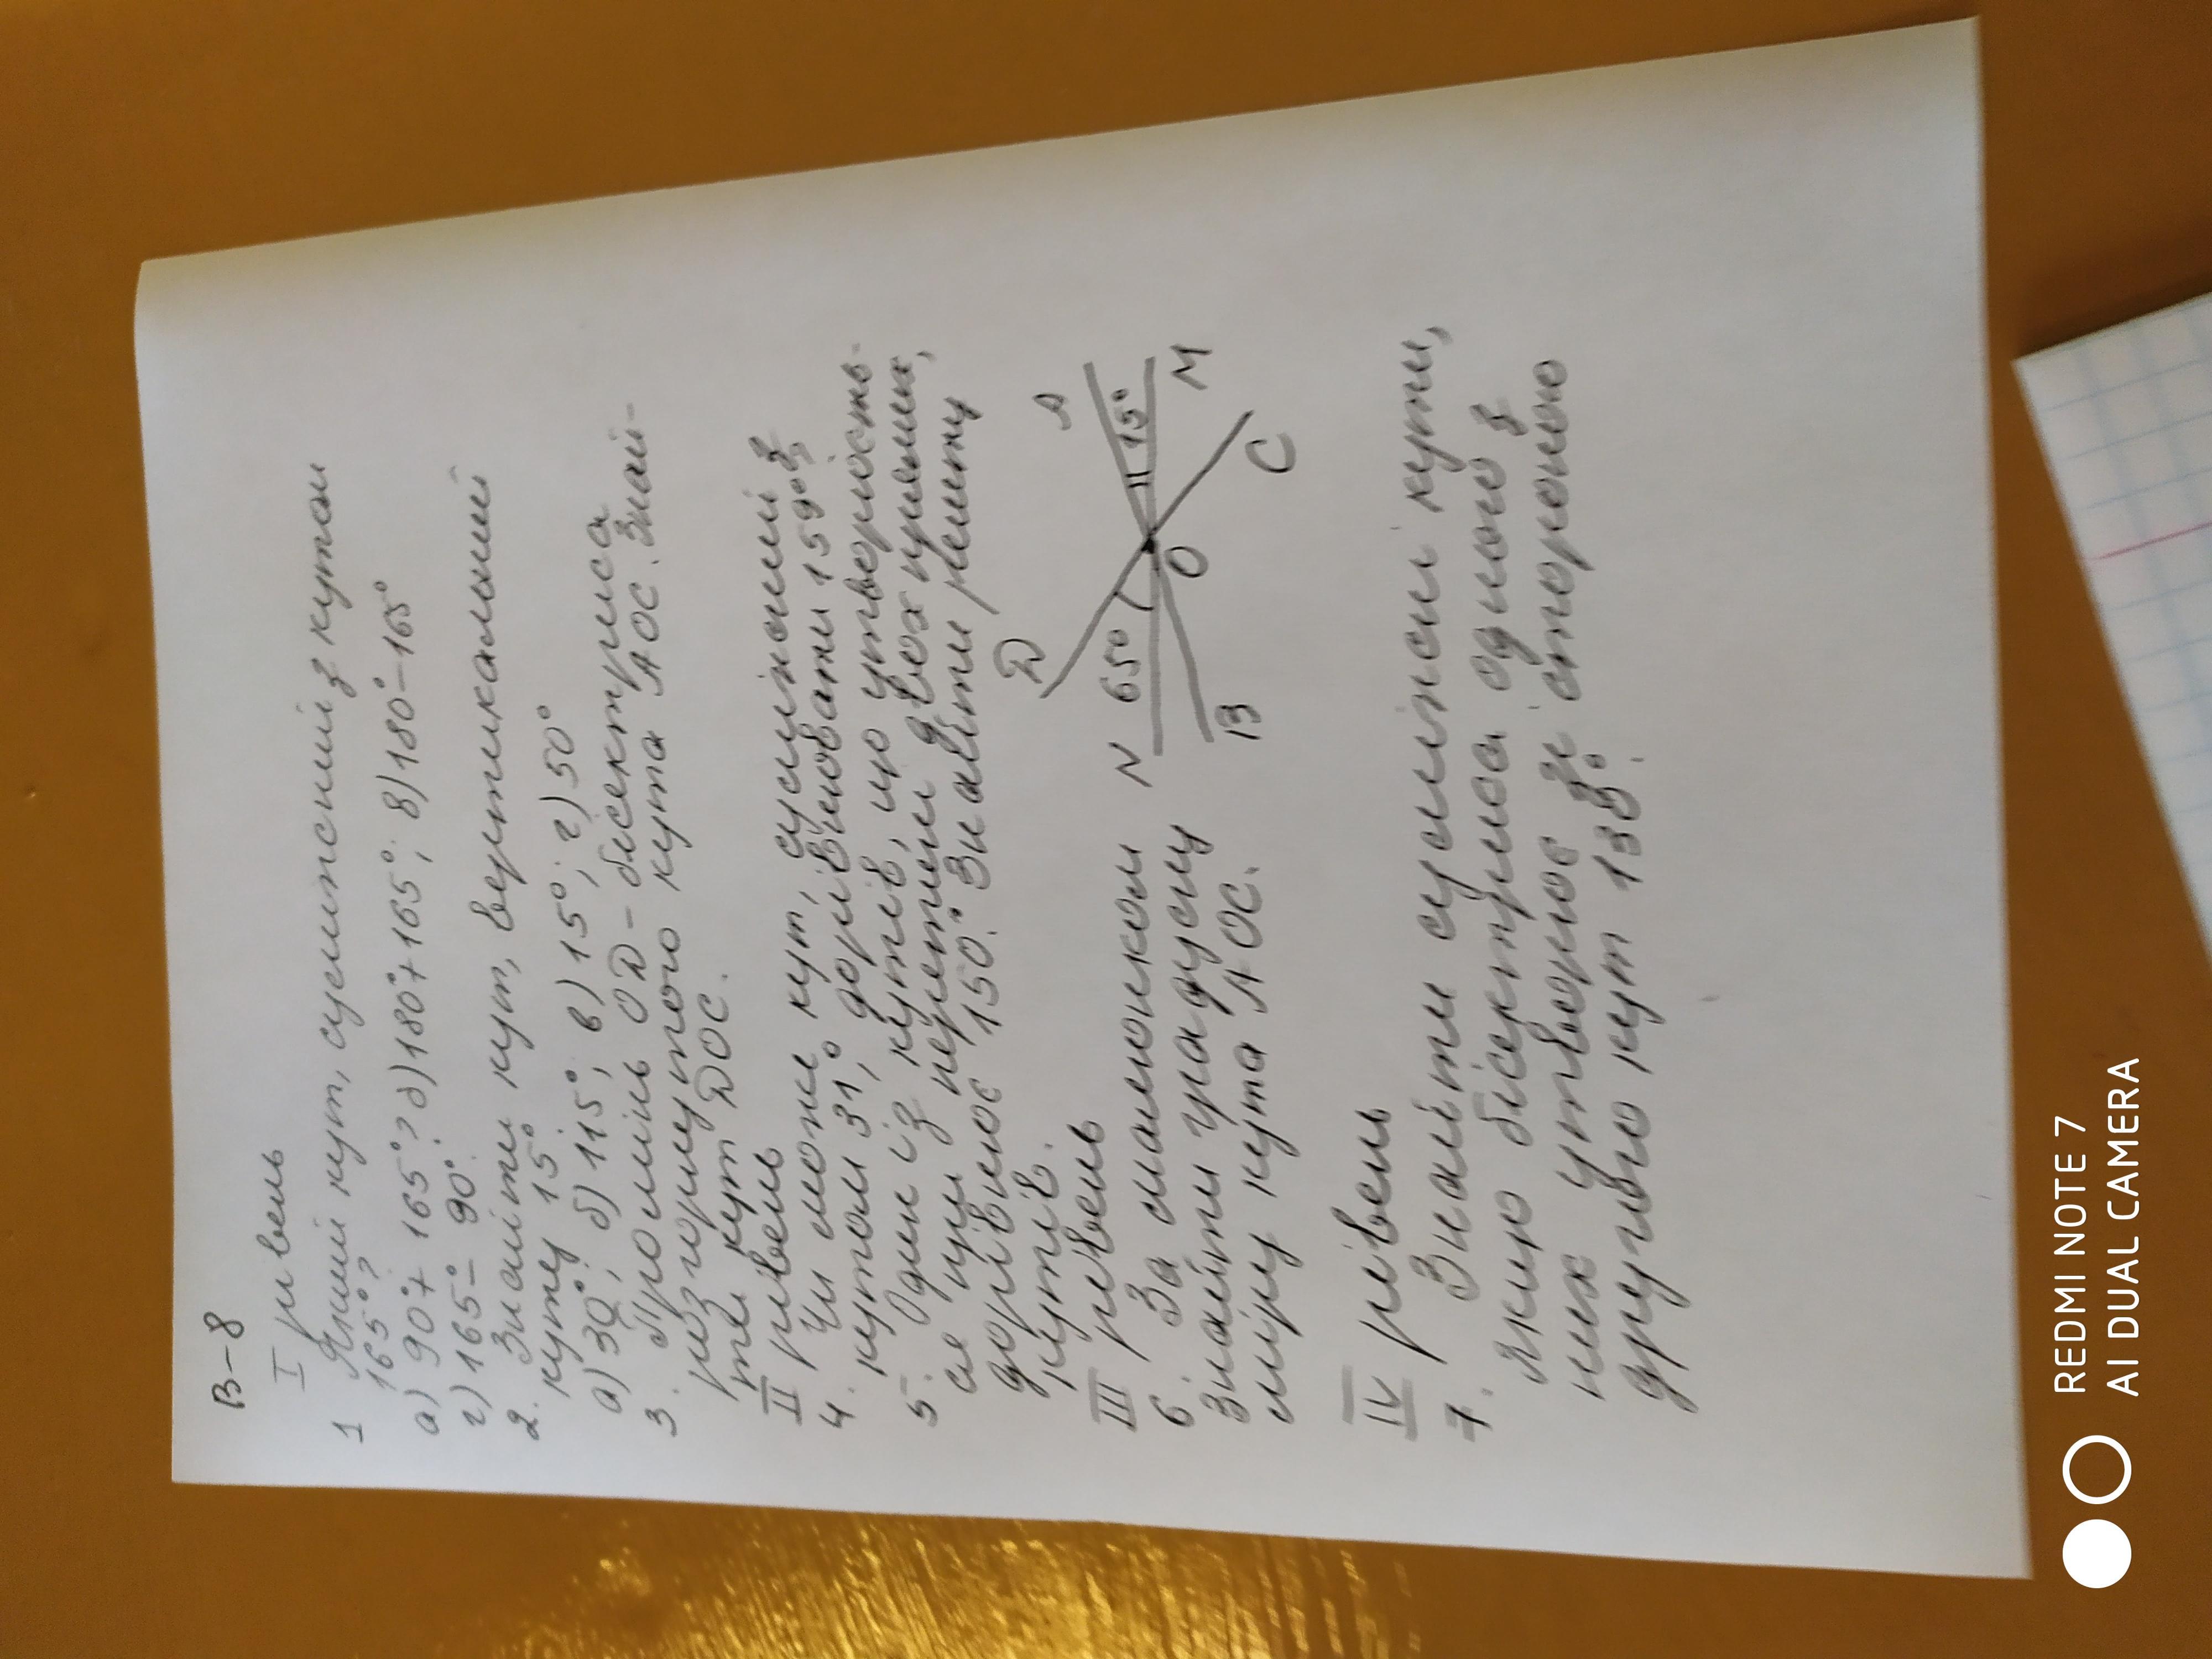 В-8
I рівень
1 Який кут, суміжний з кутом
165°?
а) 90°+165°? б) 180°+165°; в) 180°-165°
г) 165°-90°.
2. Знайти кут, вертикальний
куту 15°
а) 30°; б) 115°; в) 15°; г) 50°
3. Промінь ОД - бісектриса
розгорнутого кута АОС. Знай-
ти кут ДОС.
II рівень
4. Чи може кут, суміжний з
кутом 31°, дорівнювати 159°?
5. Один із кутів, що утворюють-
ся при перетині двох прямих,
дорівнює 150°. Знайти решту
кутів.
III рівень
6. За малюнком
знайти градусну
міру кута АОС.
Д
А
N 65°
15°
М
О
В
С
IV рівень
7. Знайти суміжні кути,
якщо бісектриса одного з
них утворює зі стороною
другого кут 138°.
REDMI NOTE 7
AI DUAL CAMERA